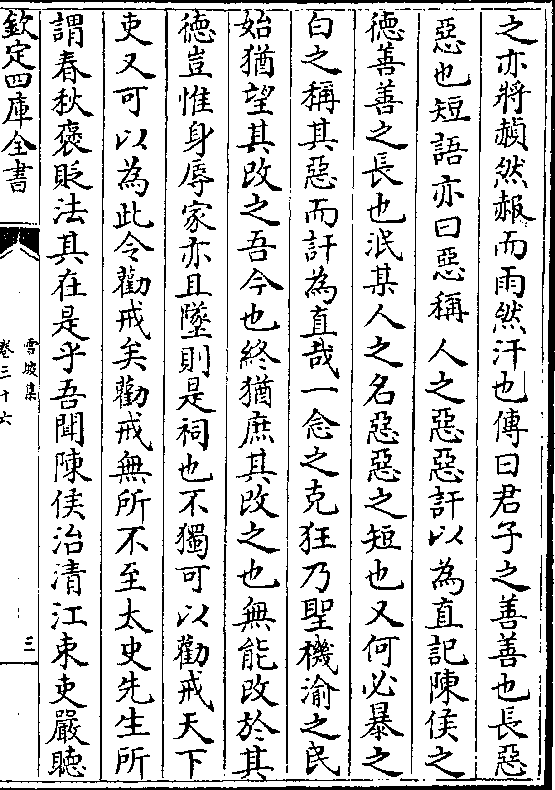 之亦將赬然赧而雨然汗也傳曰君子之善善也長惡
惡也短語亦曰惡稱人之惡惡訐以為直記陳侯之
德善善之長也泯某人之名惡惡之短也又何必暴之
白之稱其惡而訐為直哉一念之克狂乃聖機渝之民
始猶望其改之吾今也終猶庶其改之也無能改於其
德豈惟身辱家亦且墜則是祠也不獨可以勸戒天下
吏又可以為此令勸戒矣勸戒無所不至太史先生所
謂春秋褒貶法其在是乎吾聞陳侯治清江束吏嚴聽
欽定四庫全書
雪坡集
卷三十六
三